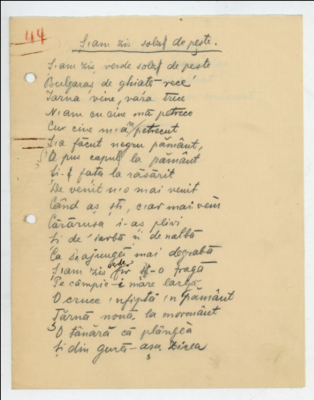 44
Ș-am zis solzi de pește.
Ș-am zis verde solzi de pește
Bulgaraș de ghiață rece
Iarna vine, vara trece
N-am cu cine mă petrece
Cu cine m-am petrecut
S-a făcut negru pământ,
A pus capul la pământ
Și-i fața la răsărit
De venit n-o mai venit
Când aș ști, c-iar mai veni
Cărărușa i-aș plivi
Și de iarbă și de nalbă
Ca s-ajungă mai degrabă
Ș-am zis verde fir -o fragă
Pe câmpie-i mare largă
O cruce înfiptă în pământ
Țărnă nouă la mormânt
O tânără că plângea
Și din gură-așa zicea